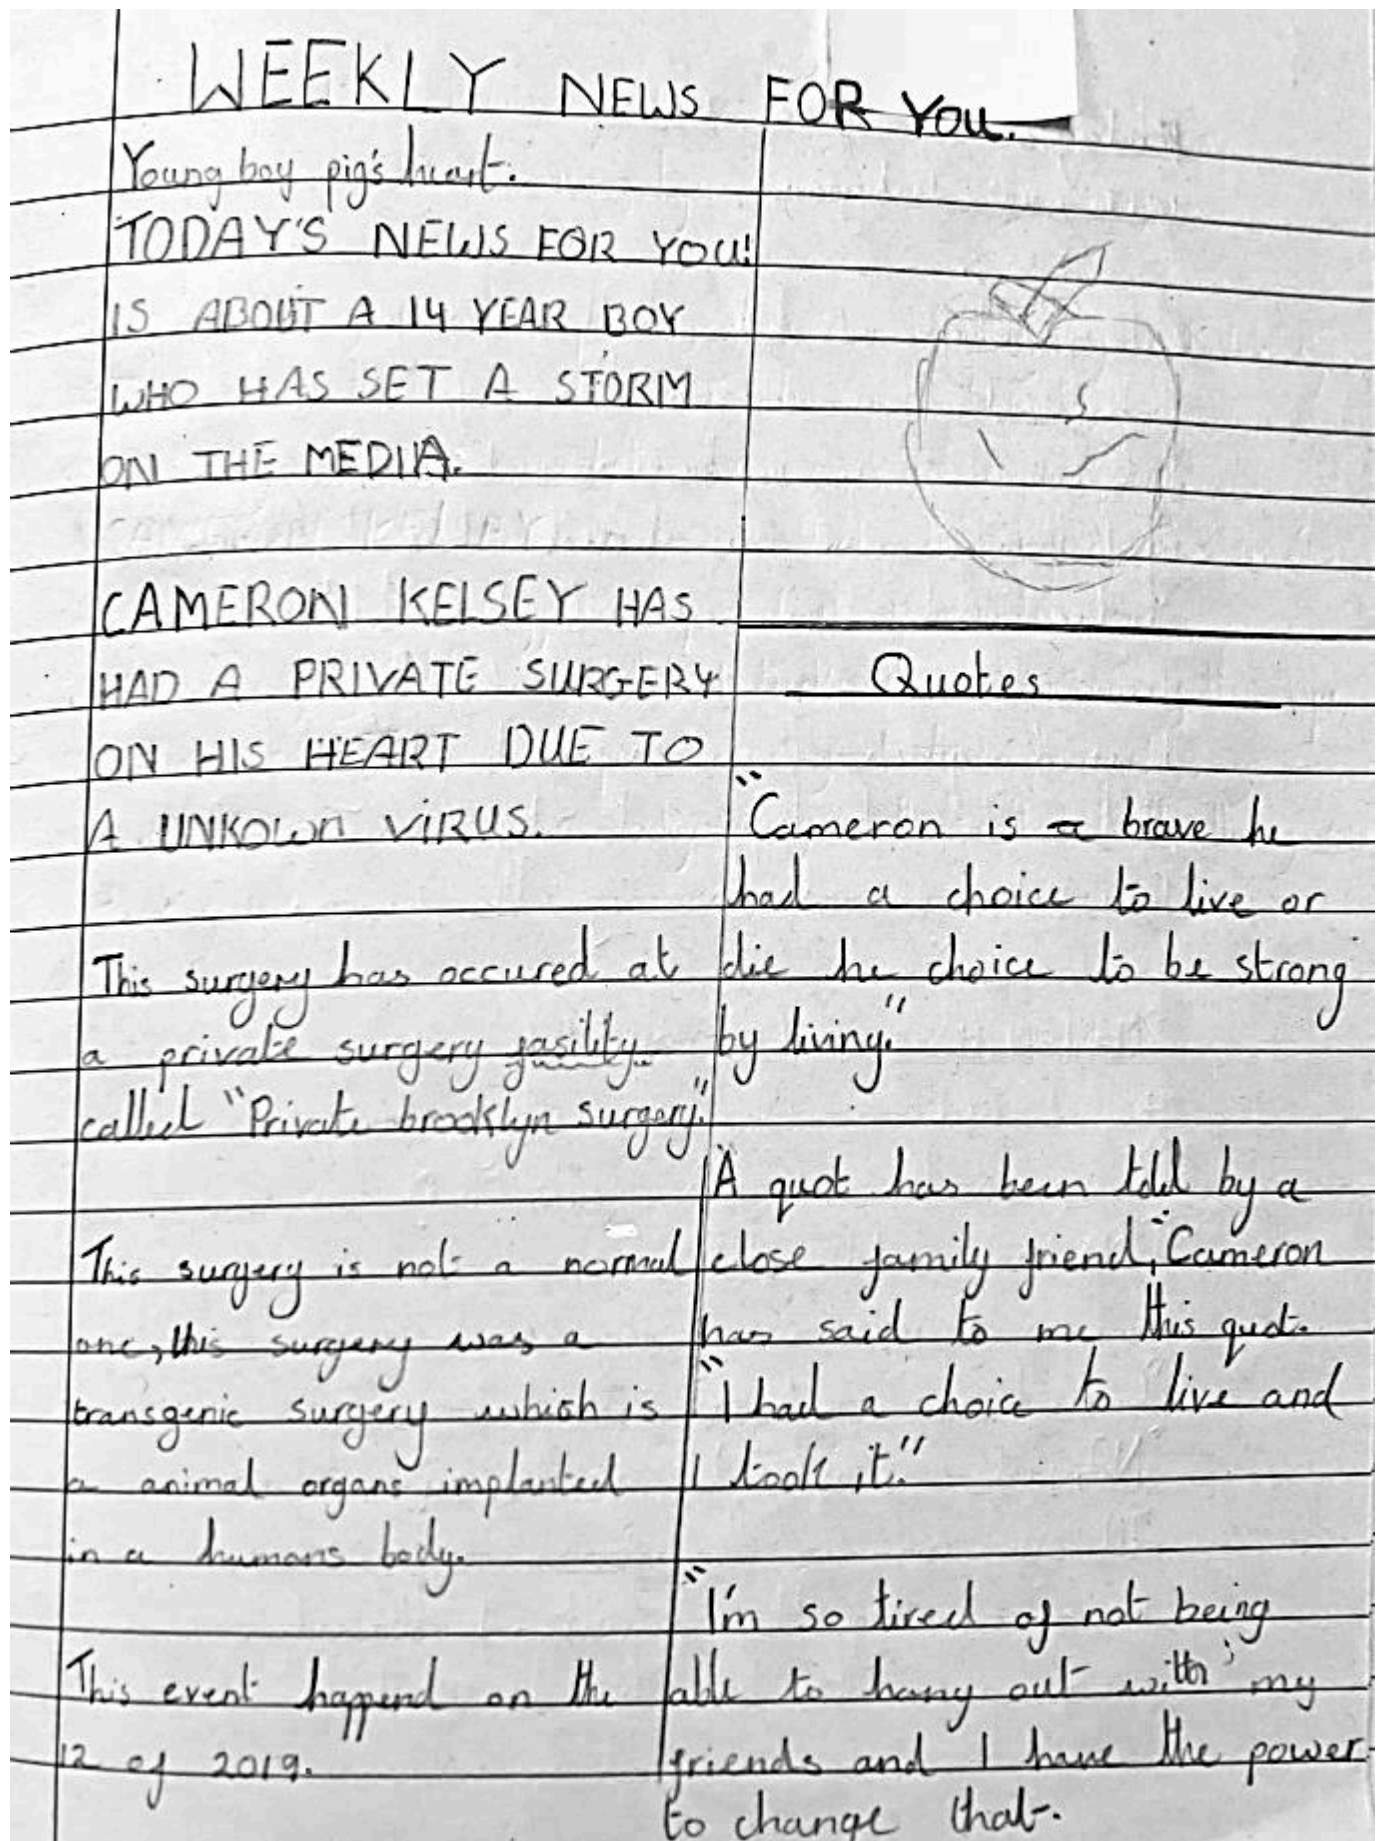 WEEKLY NEWS FOR You.
Young boy pig's heart.
TODAY'S NEWS FOR YOU!
IS ABOUT A 14 YEAR BOY
WHO HAS SET A STORM
ON THE MEDIA.
CAMERON KELSEY HAS
HAD A PRIVATE SURGERY
ON HIS HEART DUE TO
A UNKOWN VIRUS.
This surgery has occured at
a private surgery fasility
called "Private brooklyn surgery."
This surgery is not a normal
one, this surgery was a
transgenic surgery which is
a animal organs implanted
in a humans body.
This event happend on the
12 of 2019.
Quotes
"Cameron is a brave he
had a choice to live or
die he choice to be strong
by living."
A quot has been told by a
close family friend, "Cameron
has said to me this quot.
"I had a choice to live and
I took it."
"I'm so tired of not being
able to hang out with my
friends and I have the power
to change that.